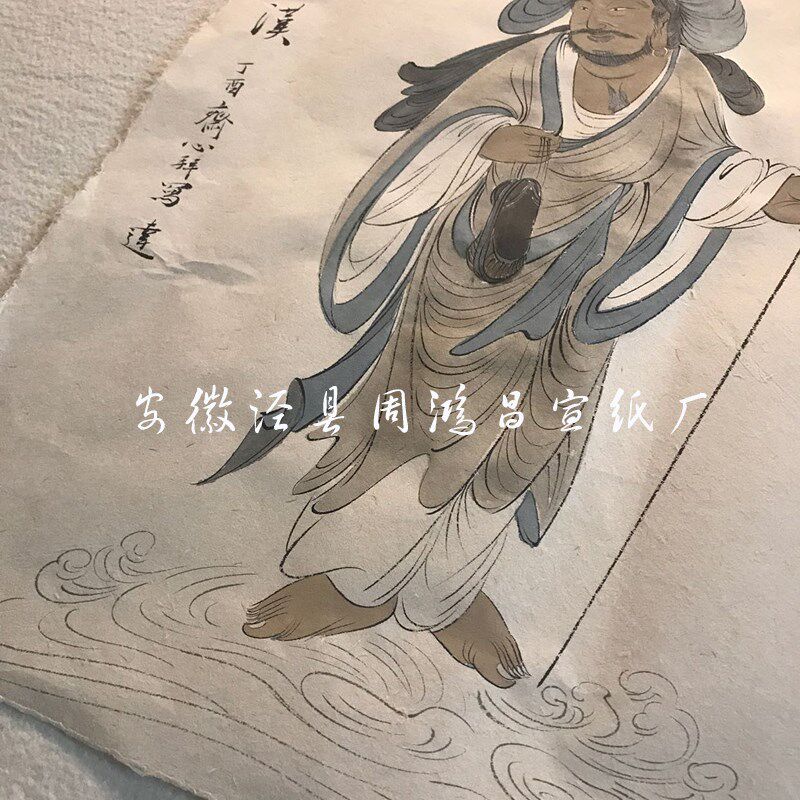 漢
丁酉齋心拜寫
達
安徽泾县周鸿昌宣纸厂